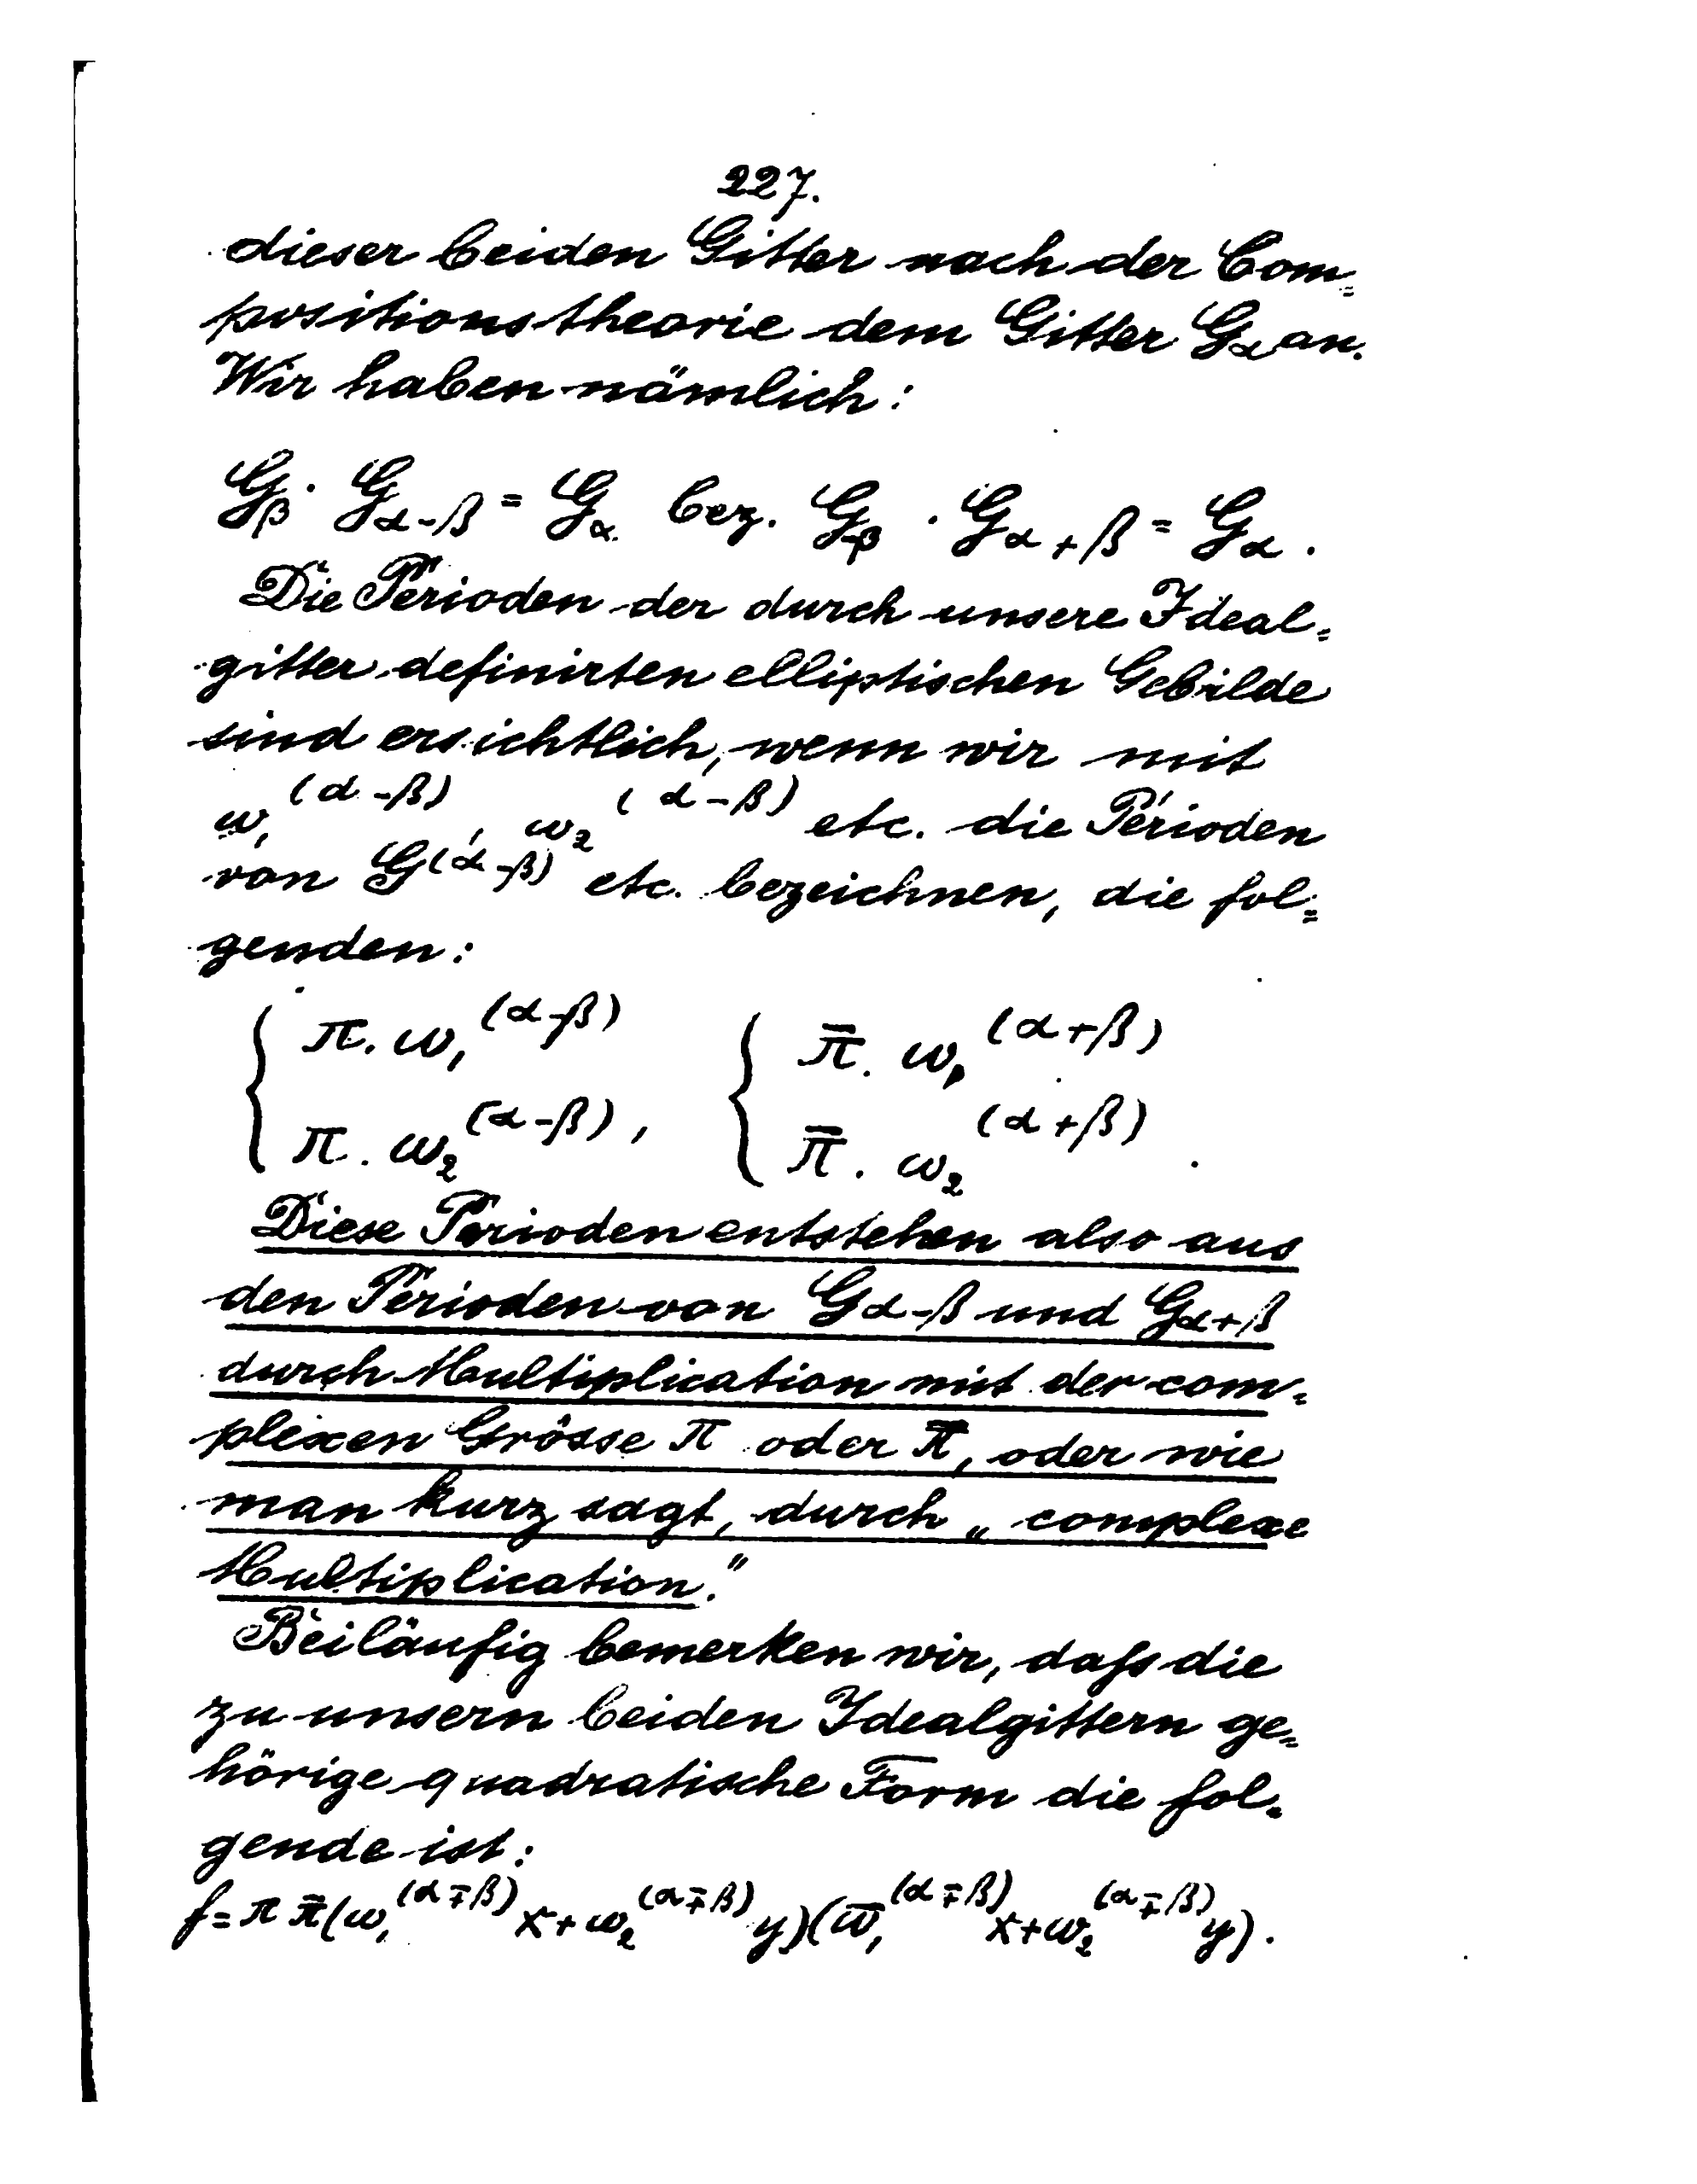 227.
dieser beiden Gitter nach der Com=
positionstheorie dem Gitter G_α an.
Wir haben nämlich:
G_β · G_{α-β} = G_α bez. G_{-β} · G_{α+β} = G_α.
Die Perioden der durch unsere Ideal=
gitter definirten elliptischen Gebilde
sind ersichtlich, wenn wir mit
ω₁^{(α-β)}, ω₂^{(α-β)} etc. die Perioden
von G^{(α-β)} etc. bezeichnen, die fol=
genden:
{ π. ω₁^{(α-β)} { π̄. ω₁^{(α+β)}
π. ω₂^{(α-β)}, π̄. ω₂^{(α+β)}.
Diese Perioden entstehen also aus
den Perioden von G_{α-β} und G_{α+β}
durch Multiplication mit der com=
plexen Grösse π oder π̄, oder wie
man kurz sagt, durch „complexe
Multiplication."
Beiläufig bemerken wir, daſs die
zu unsern beiden Idealgittern ge=
hörige quadratische Form die fol=
gende ist:
f = π π̄ (ω₁^{(α∓β)} x + ω₂^{(α∓β)} y)(ω̄₁^{(α∓β)} x + ω₂^{(α∓β)} y).